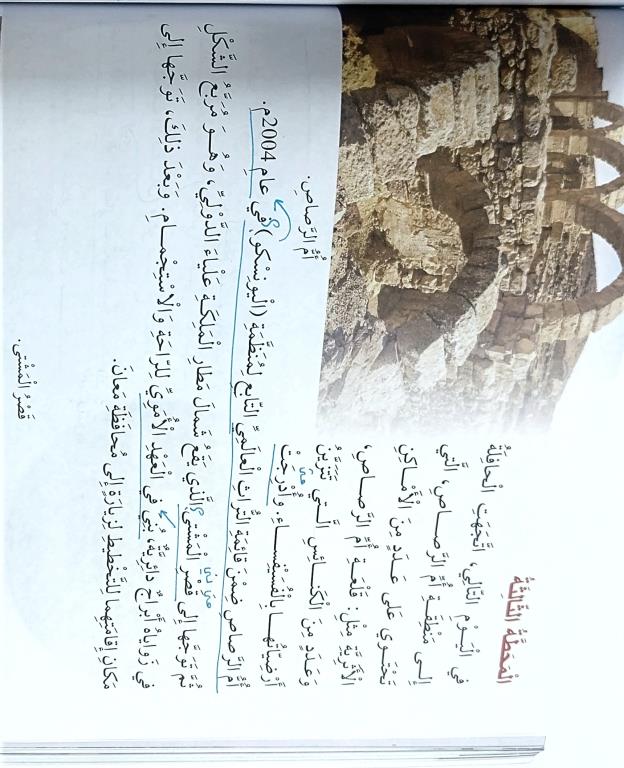 الْمَحَطَّةُ الثَّالِثَةُ
في الْيَوْمِ التّالي، اتَّجَهَتِ الْحافِلَةُ
إِلـى مَنْطِقَـةِ أُمِّ الرَّصـاصِ، الَّتي
تَحْتَـوي عَلى عَـدَدٍ مِنَ الْأَمـاكِنِ
الْأَثَرِيَّةِ مِثْلِ: قَلْعَـةِ أُمِّ الرَّصـاصِ،
وَعَـدَدٍ مِنَ الْكَنـائِسِ الَّتـي تَتَزَيَّنُ
أَرْضِيّاتُهـا بِالْفُسَيْفِسـاءِ، وَأُدْرِجَتْ
متى
أُمُّ الرَّصاصِ.
أُمُّ الرَّصاصِ ضِمْنَ قائِمَةِ التُّراثِ الْعالَمِيِّ التّابِعِ لِمُنَظَّمَةِ (الْيونِسْكو) في عامِ 2004م.
ثُمَّ تَوَجَّها إِلى قَصْرِ الْمَشْتى الَّذي يَقَعُ شَمالَ مَطارِ الْمَلِكَةِ عَلْياءَ الدَّوْلِيِّ، وَهُـوَ مُرَبَّعُ الشَّكْلِ
متى بني
في زَواياهُ أَبْراجٌ دائِرِيَّةٌ، بُنِيَ في الْعَهْدِ الْأُمَوِيِّ لِلرّاحَةِ وَالْاسْتِجْمـامِ. وَبَعْدَ ذلِكَ، تَوَجَّها إِلى
مَكانِ إِقامَتِهِما لِلتَّخْطيطِ لِزِيارَةٍ إِلى مُحافَظَةِ مَعانَ.
قَصْرُ الْمَشْتى.